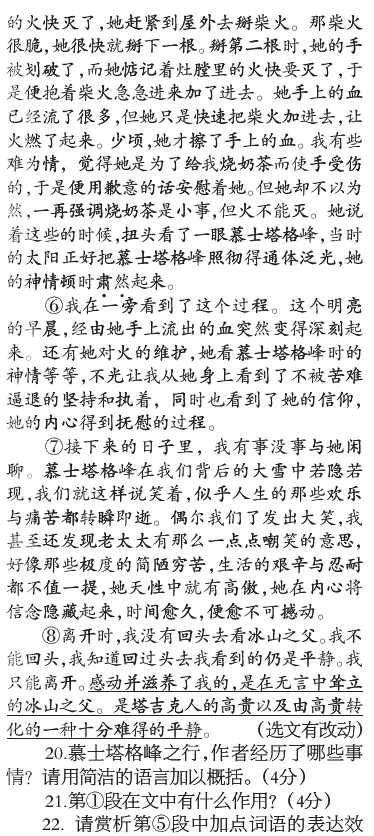 的火快灭了,她赶紧到屋外去掰柴火。那柴火
很脆,她很快就掰下一根。掰第二根时,她的手
被划破了,而她惦记着灶膛里的火快要灭了,于
是便抱着柴火急急进来加了进去。她手上的血
已经流了很多,但她只是快速把柴火加进去,让
火燃了起来。少顷,她才擦了手上的血。我有些
难为情,觉得她是为了给我烧奶茶而使手受伤
的,于是便用歉意的话安慰着她。但她却不以为
然,一再强调烧奶茶是小事,但火不能灭。她说
着这些的时候,扭头看了一眼慕士塔格峰,当时
的太阳正好把慕士塔格峰照彻得通体泛光,她
的神情顿时肃然起来。
⑥我在一旁看到了这个过程。这个明亮
的早晨,经由她手上流出的血突然变得深刻起
来。还有她对火的维护,她看慕士塔格峰时的
神情等等,不光让我从她身上看到了不被苦难
逼退的坚持和执着,同时也看到了她的信仰,
她的内心得到抚慰的过程。
⑦接下来的日子里,我有事没事与她闲
聊。慕士塔格峰在我们背后的大雪中若隐若
现,我们就这样说笑着,似乎人生的那些欢乐
与痛苦都转瞬即逝。偶尔我们了发出大笑,我
甚至还发现老太太有那么一点点嘲笑的意思,
好像那些极度的简陋穷苦,生活的艰辛与忍耐
都不值一提,她天性中就有高傲,她在内心将
信念隐藏起来,时间愈久,便愈不可撼动。
⑧离开时,我没有回头去看冰山之父。我不
能回头,我知道回过头去我看到的仍是平静。我
只能离开。感动并滋养了我的,是在无言中耸立
的冰山之父。是塔吉克人的高贵以及由高贵转
化的一种十分难得的平静。 (选文有改动)
20.慕士塔格峰之行,作者经历了哪些事
情?请用简洁的语言加以概括。(4分)
21.第①段在文中有什么作用?(4分)
22. 请赏析第⑤段中加点词语的表达效